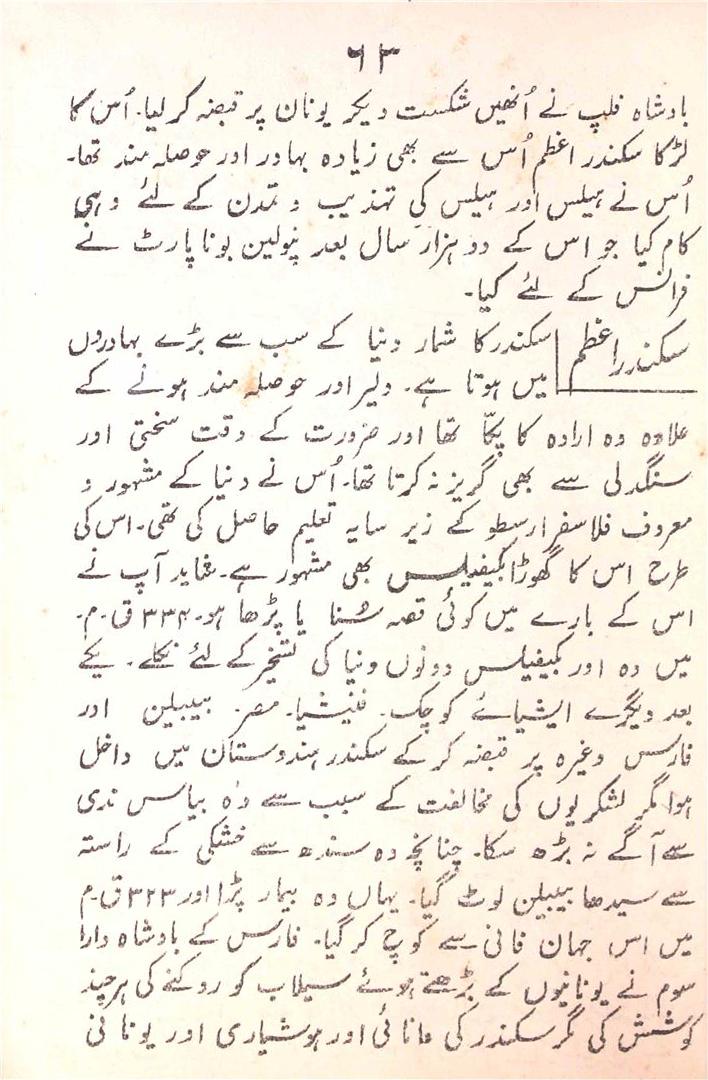 ۶۳
بادشاہ فلپ نے اُنھیں شکست دیکر یونان پر قبضہ کر لیا۔ اُس کا
لڑکا سکندر اعظم اُس سے بھی زیادہ بہادر اور حوصلہ مند تھا۔
اُس نے ہیلس اور ہیلس کی تہذیب و تمدن کے لئے وہی
کام کیا جو اس کے دو ہزار سال بعد نپولین بونا پارٹ نے
فرانس کے لئے کیا۔
سکندر اعظم
سکندر کا شمار دنیا کے سب سے بڑے بہادروں
میں ہوتا ہے۔ دلیر اور حوصلہ مند ہونے کے
علاوہ وہ ارادہ کا پکّا تھا اور ضرورت کے وقت سختی اور
سنگدلی سے بھی گریز نہ کرتا تھا۔ اُس نے دنیا کے مشہور و
معروف فلاسفر ارسطو کے زیر سایہ تعلیم حاصل کی تھی۔ اس کی
طرح اس کا گھوڑا بکیفیلس بھی مشہور ہے۔ شاید آپ نے
اس کے بارے میں کوئی قصہ سُنا یا پڑھا ہو۔ ۳۳۴ ق۔م۔
میں وہ اور بکیفیلس دونوں دنیا کی تسخیر کے لئے نکلے۔ یکے
بعد دیگرے ایشیائے کوچک۔ فنیشیا۔ مصر۔ بیبیلن اور
فارس وغیرہ پر قبضہ کر کے سکندر ہندوستان میں داخل
ہوا مگر لشکریوں کی مخالفت کے سبب سے وہ بیاس ندی
سے آگے نہ بڑھ سکا۔ چنانچہ وہ سندھ سے خشکی کے راستہ
سے سیدھا بیبیلن لوٹ گیا۔ یہاں وہ بیمار پڑا اور ۳۲۳ ق۔م
میں اس جہان فانی سے کوچ کر گیا۔ فارس کے بادشاہ دارا
سوم نے یونانیوں کے بڑھتے ہوئے سیلاب کو روکنے کی ہر چند
کوشش کی مگر سکندر کی دانائی اور ہوشیاری اور یونانی